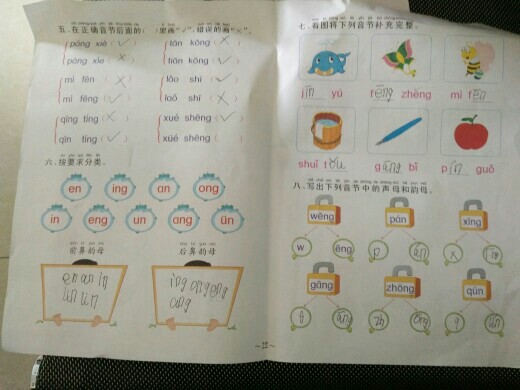 五、在正确音节后面的( )里画"√",错误的画"×"。
páng xiè ( √ )
pàng xiè ( × )
mì fēn ( × )
mì fēng ( √ )
qīng tíng ( × )
qīn tíng ( √ )
tān kōng ( × )
tān kòng ( × )
lǎo shī ( √ )
laǒ shī ( × )
xué shēng ( √ )
xüé shēng ( )
六、按要求分类。
en ing an ong
in eng un ang ün
前鼻韵母
后鼻韵母
en an in
un ün
ing ong eng
ang
~12~
七、看图将下列音节补充完整。
jīn yú
fēng zhēng
mì fēn
shuǐ tǒu
gāng bǐ
pín guǒ
八、写出下列音节中的声母和韵母。
wēng pán xīng
w ēng p án x īng
gāng zhōng qún
g āng zh ōng q ún